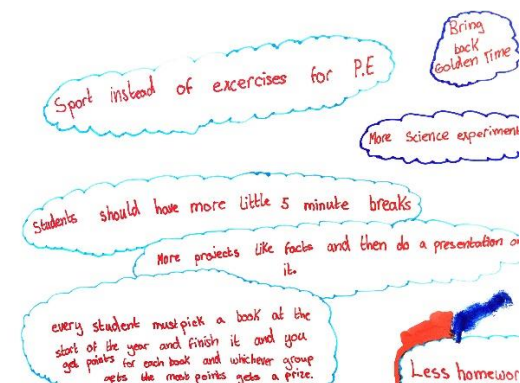 Sport instead of excercises for P.E
Bring
back
Golden Time
More Science experiment
Students should have more little 5 minute breaks
More projects like facts and then do a presentation on
it.
every student must pick a book at the
start of the year and finish it and you
get points for each book and whichever group
gets the most points gets a prize.
Less homewor